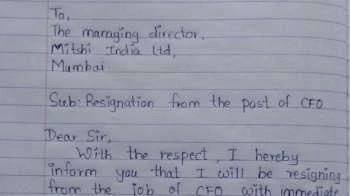 To,
The managing director,
Mitshi India Ltd,
Mumbai
Sub: Resignation from the post of CFO
Dear Sir,
With the respect, I hereby
inform you that I will be resigning
from the job of CFO with immediate